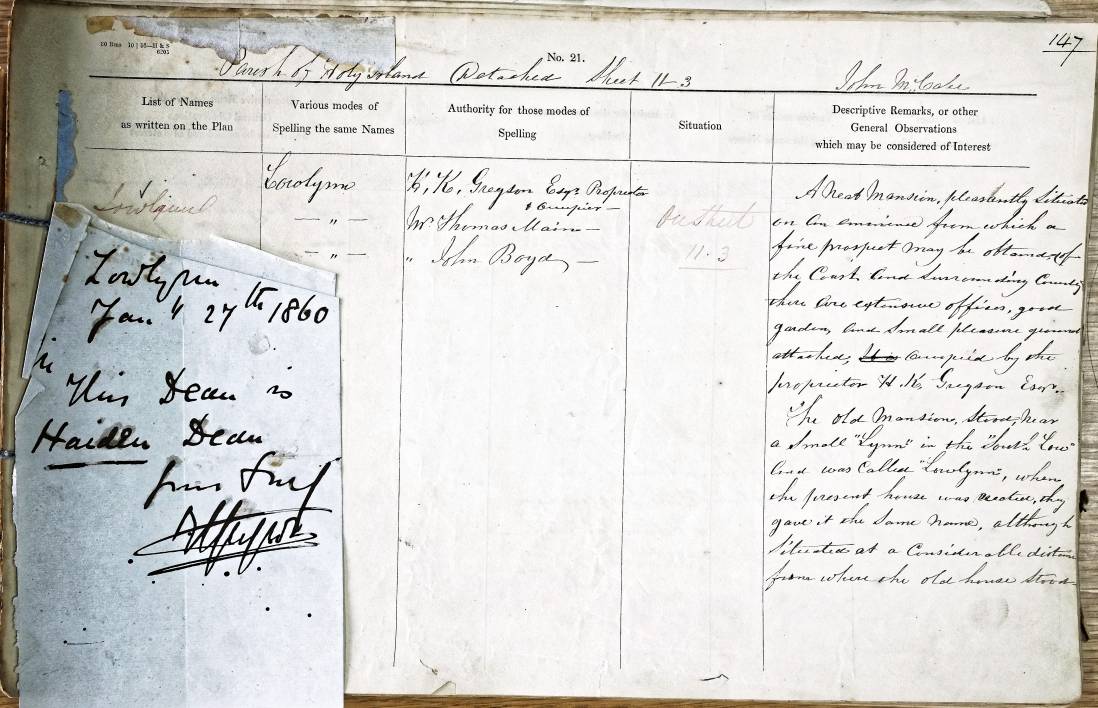 147
No. 21.
Parish of Holy Island (Detached Sheet 11-3
John McCabe
List of Names
as written on the Plan
Various modes of
Spelling the same Names
Authority for those modes of
Spelling
Situation
Descriptive Remarks, or other
General Observations
which may be considered of Interest
Lowlynn
Lowlynn
— " —
— " —
H. K. Gregson Esqr. Proprietor
& Occupier —
Mr Thomas Main —
" John Boyd —
On Sheet
11.3
A Neat Mansion, pleasantly Situated
on an eminence from which a
fine prospect may be obtained of
the Coast and Surrounding Country
there are extensive offices, good
garden, and Small pleasure ground
attached, It is occupied by the
proprietor H. K. Gregson Esqr.
The old Mansion, Stood, Near
a Small "Lynn" in the "South Low"
And was called "Lowlynn", when
the present house was erected, they
gave it the Same Name, although
Situated at a Considerable distance
from where the old house Stood
Lowlynn
Jany 27th 1860
This Dean is
Haiden Dean